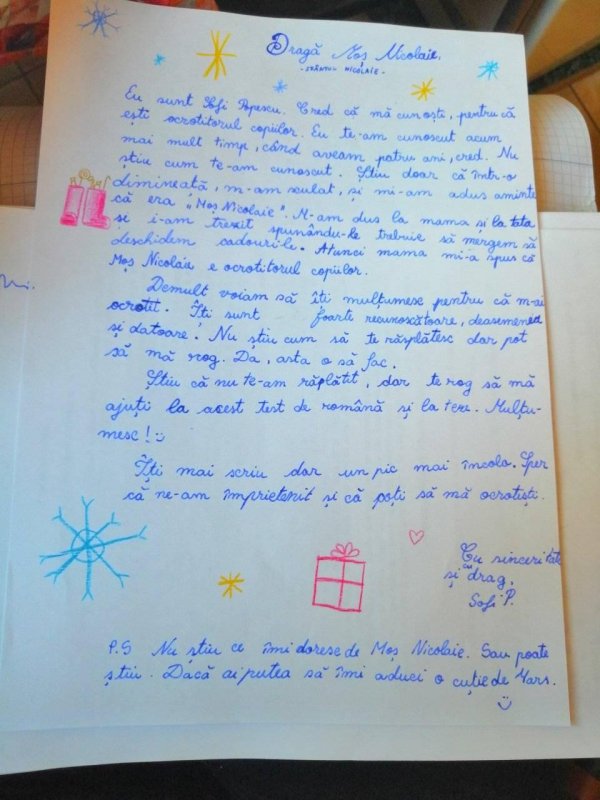 Dragă Moș Nicolaie,
- SFÂNTUL NICOLAIE -
Eu sunt Sofi Popescu. Cred că mă cunoști, pentru că
ești ocrotitorul copiilor. Eu te-am cunoscut acum
mai mult timp, când aveam patru ani, cred. Nu
știu cum te-am cunoscut. Știu doar că într-o
dimineată, m-am sculat, și mi-am adus aminte
că era „Moș Nicolaie". M-am dus la mama și la tata
și i-am trezit spunându-le trebuie să mergem să
deschidem cadourile. Atunci mama mi-a spus că
Moș Nicolaie e ocrotitorul copiilor.
Demult voiam să îți mulțumesc pentru că m-ai
ocrotit. Îți sunt foarte recunoscătoare, deasemenea
și datoare. Nu știu cum să te răsplătesc dar pot
să mă rog. Da, asta o să fac.
Știu că nu te-am răplătit, dar te rog să mă
ajuți la acest test de română și la teze. Mulțu-
mesc!
Îți mai scriu dar un pic mai încolo. Sper
că ne-am împrietenit și că poți să mă ocrotești.
Cu sinceritate
și cu drag,
Sofi P.
P.S Nu știu ce îmi doresc de Moș Nicolaie. Sau poate
știu. Dacă ai putea să îmi aduci o cutie de Mars.